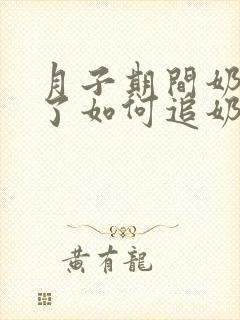 月子期間奶
了如何追奶
黃有龍